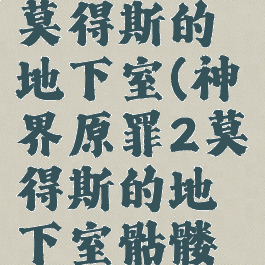 莫得斯的
地下室(神
界原罪2莫
得斯的地
下室骷髅